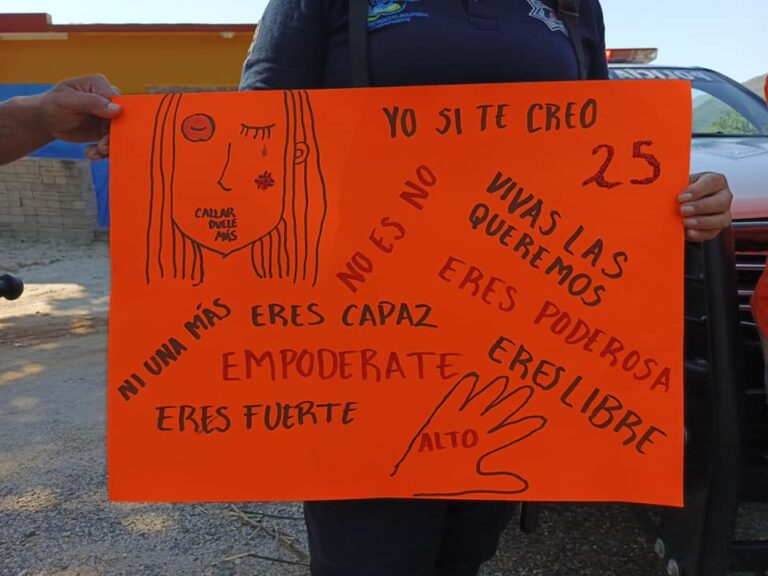 YO SI TE CREO
25
CALLAR
DUELE
MÁS
NO ES NO
VIVAS LAS
QUEREMOS
ERES PODEROSA
NI UNA MÁS
ERES CAPAZ
EMPODERATE
ERES LIBRE
ERES FUERTE
ALTO